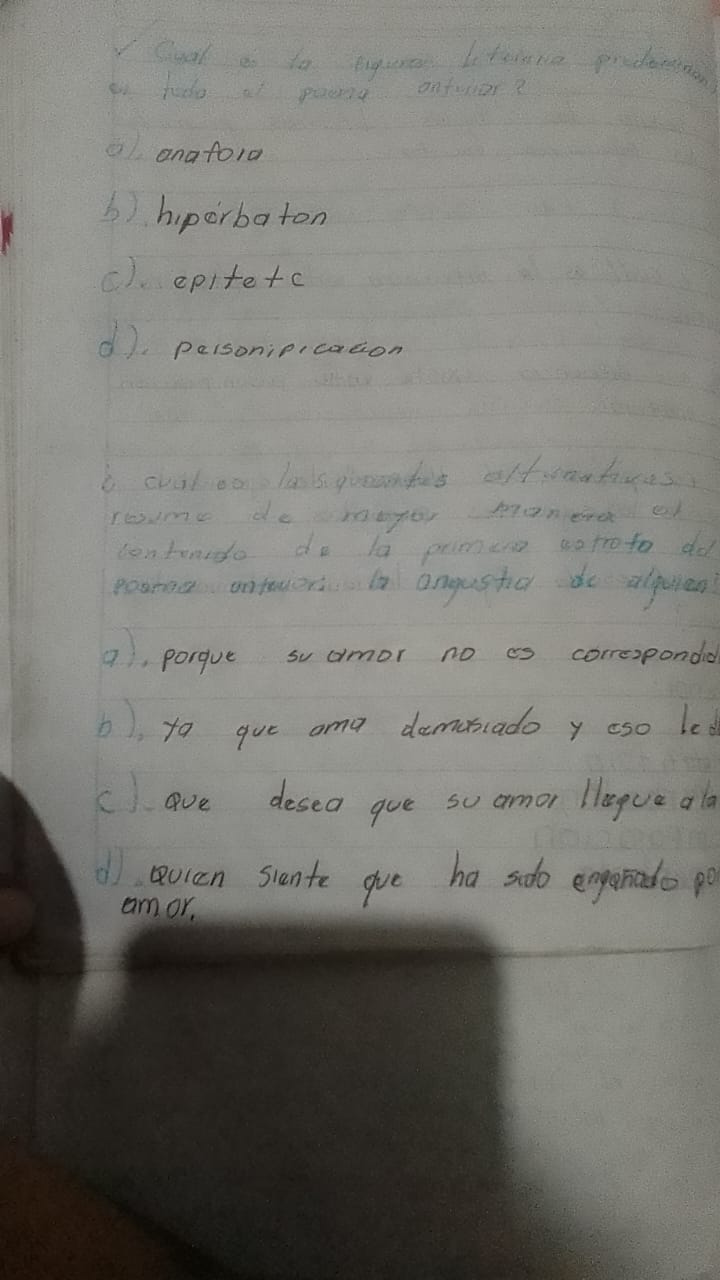 Cual es la figura literaria predominan
en todo el poema anterior?
a). anafora
b). hipérbaton
c). epiteto
d). personipicacion
cual es
resume de mayor manera el
contenido de la primera estrofa del
poema anterior. la angustia de alguien
a). porque su amor no es correspondid
b). ya que ama demasiado y eso le d
c). que desea que su amor llegue a la
d). Quien siente que ha sido engañado po
amor.